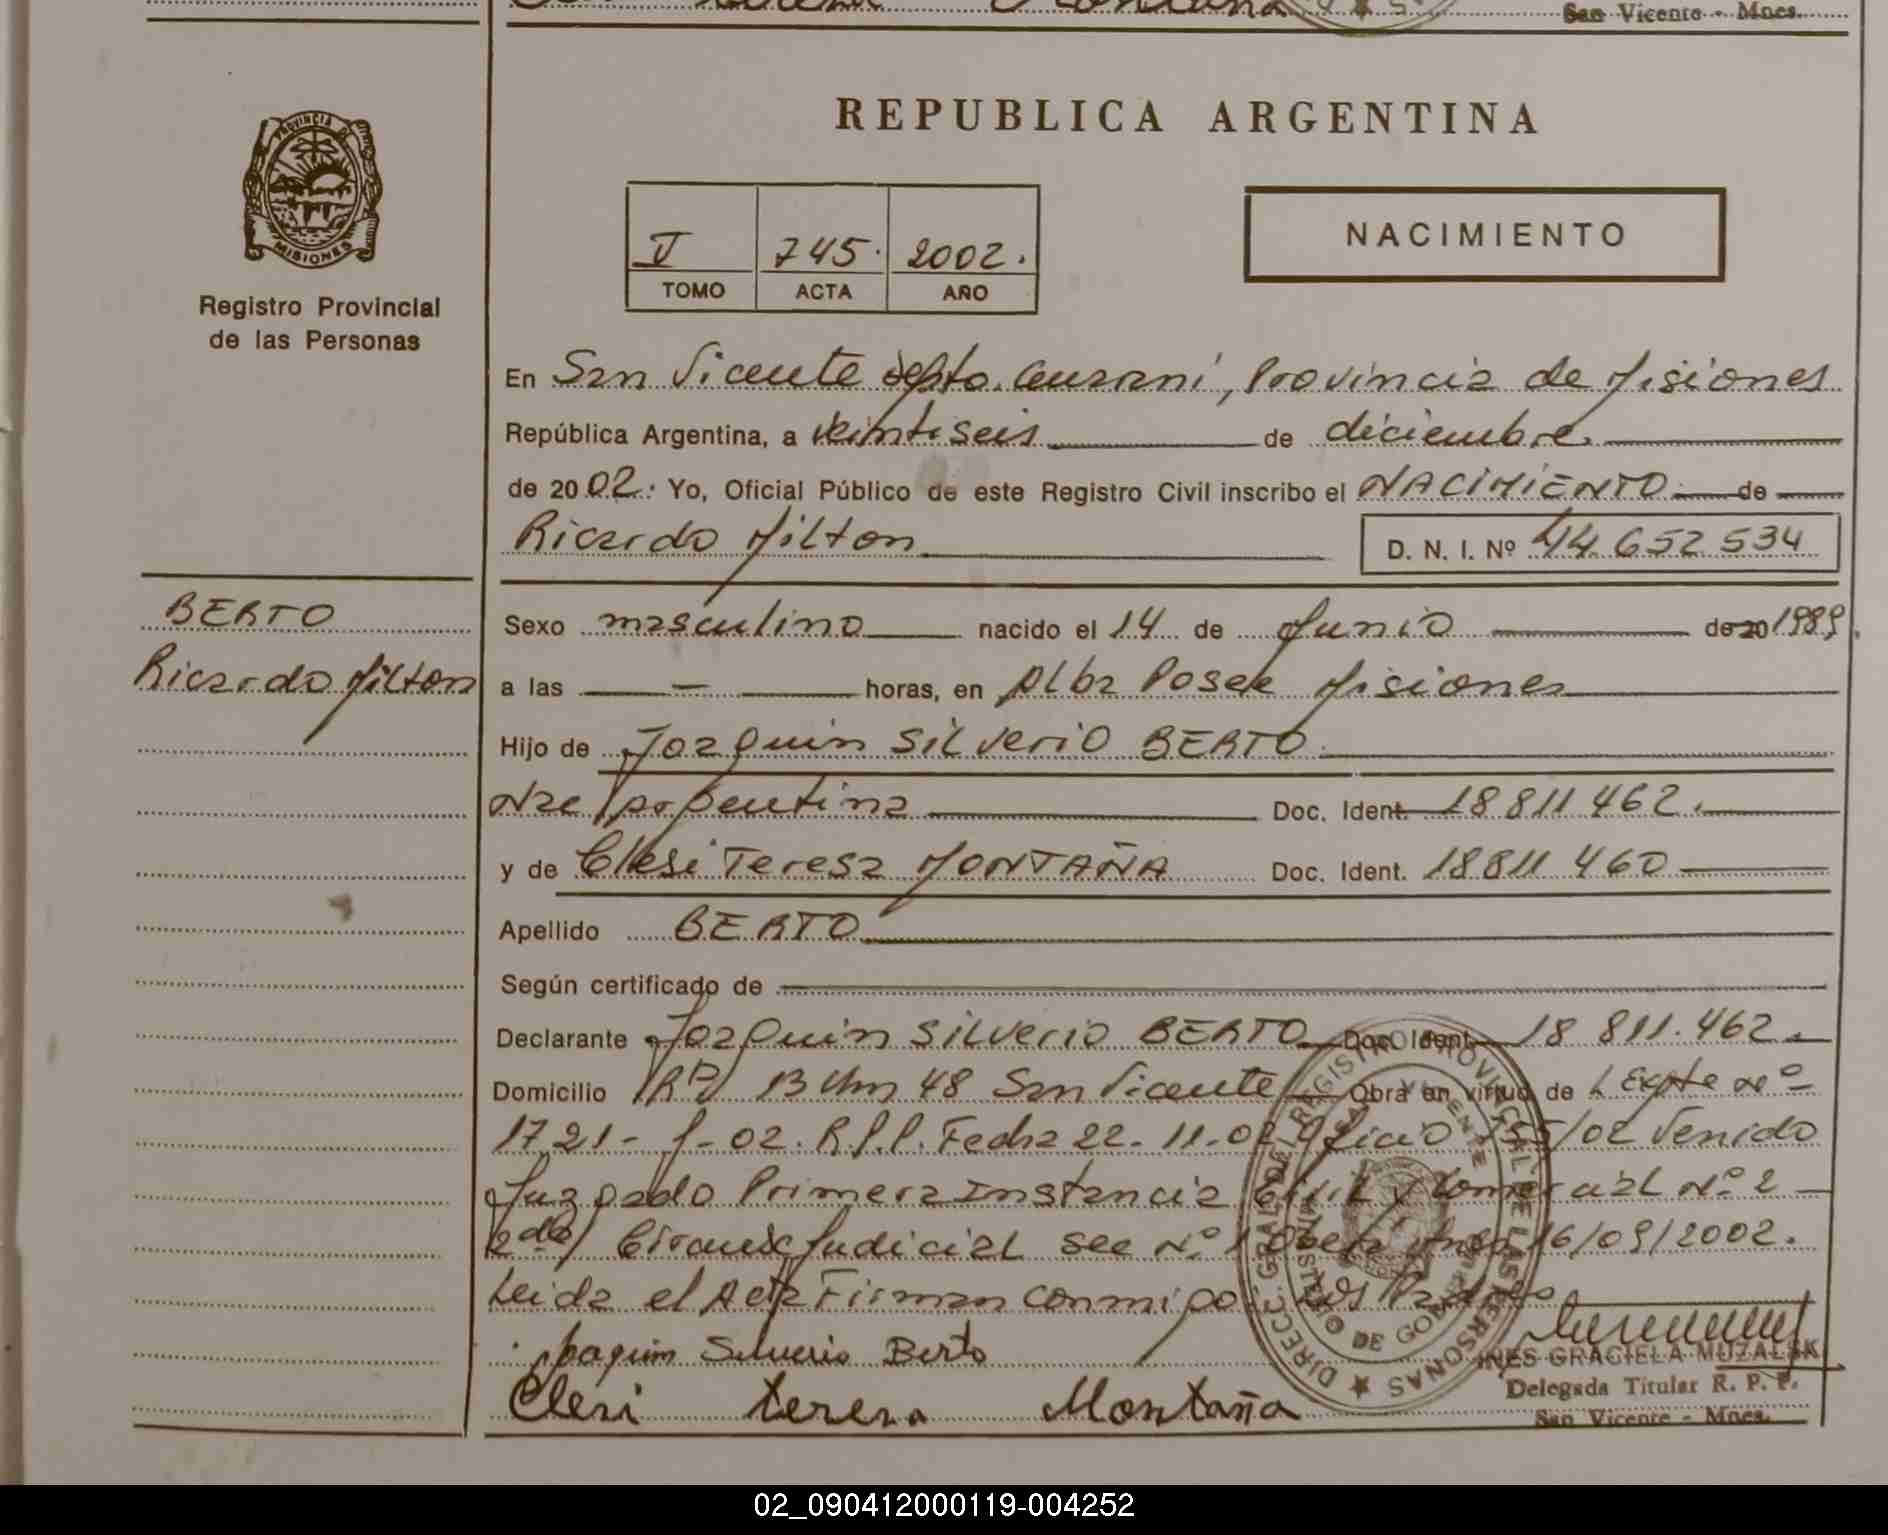 San Vicente - Mnes.
REPUBLICA ARGENTINA
PROVINCIA DE
MISIONES
Registro Provincial
de las Personas
V 745. 2002.
TOMO ACTA AÑO
NACIMIENTO
En San Vicente depto. Guarani, Provincia de Misiones
República Argentina, a veintiseis de diciembre.
de 2002. Yo, Oficial Público de este Registro Civil inscribo el NACIMIENTO de
Ricardo Milton
D. N. I. Nº 44.652.534
BERTO
Ricardo Milton
Sexo masculino nacido el 14 de Junio de 20 1989.
a las — horas, en Alba Posse Misiones
Hijo de Joaquin Silverio BERTO.
Nac Argentina Doc. Ident. 18 811.462.
y de Clesi Teresa MONTAÑA Doc. Ident. 18811 460
Apellido BERTO
Según certificado de
Declarante Joaquin Silverio BERTO Doc. Ident. 18 811.462.
Domicilio 13 Km 48 San Vicente Obra en virtud de Expte Nº
1721- -02. R.P.P. Fecha 22-11-02 Oficio /02 Venido
Juzgado Primera Instancia Civil y Comercial Nº 2
2da Judicial sec Nº 1 16/09/2002.
Leida el Acta Firman conmigo Los Padres
Joaquim Silverio Berto
Cleri terera Montaña
DIRECC. GRAL. DEL REGISTRO PROVINCIAL DE LAS PERSONAS
SAN VICENTE
INES GRACIELA MUZALSK
Delegada Titular R. P. P.
San Vicente - Mnes.
02_090412000119-004252